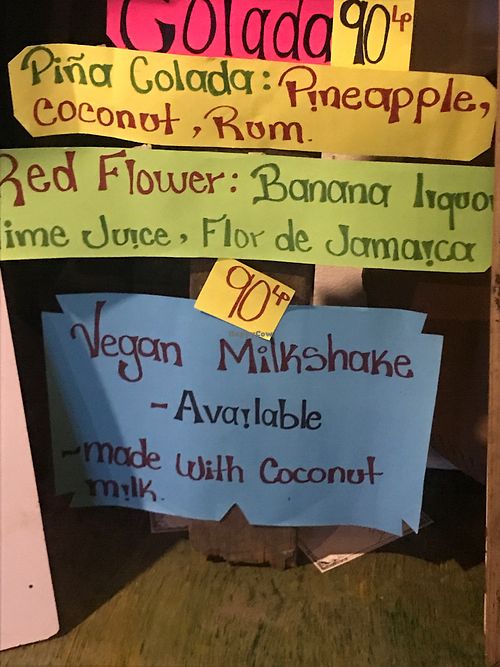 Colada 90 Lp
Piña Colada: Pineapple,
Coconut, Rum.
Red Flower: Banana liquo
ime Juice, Flor de Jamaica
90 Lp
Vegan Milkshake
- Available
- made with Coconut
milk.